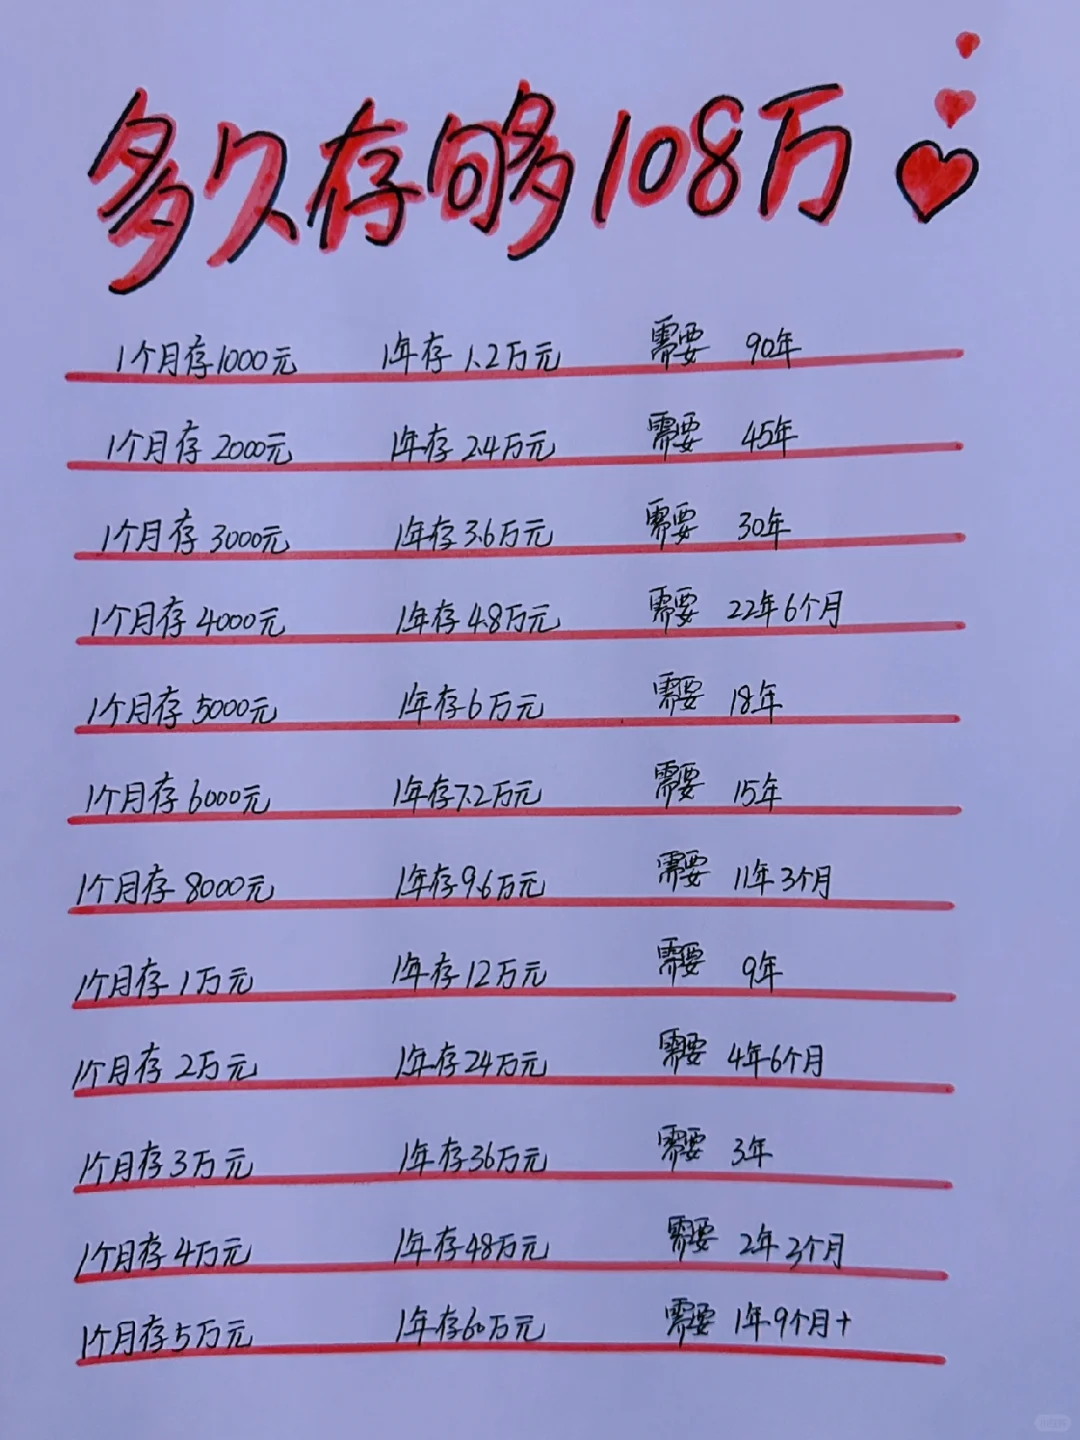 多久存够108万
1个月存1000元 1年存1.2万元 需要 90年
1个月存2000元 1年存2.4万元 需要 45年
1个月存3000元 1年存3.6万元 需要 30年
1个月存4000元 1年存4.8万元 需要 22年6个月
1个月存5000元 1年存6万元 需要 18年
1个月存6000元 1年存7.2万元 需要 15年
1个月存8000元 1年存9.6万元 需要 11年3个月
1个月存1万元 1年存12万元 需要 9年
1个月存2万元 1年存24万元 需要 4年6个月
1个月存3万元 1年存36万元 需要 3年
1个月存4万元 1年存48万元 需要 2年3个月
1个月存5万元 1年存60万元 需要 1年9个月+